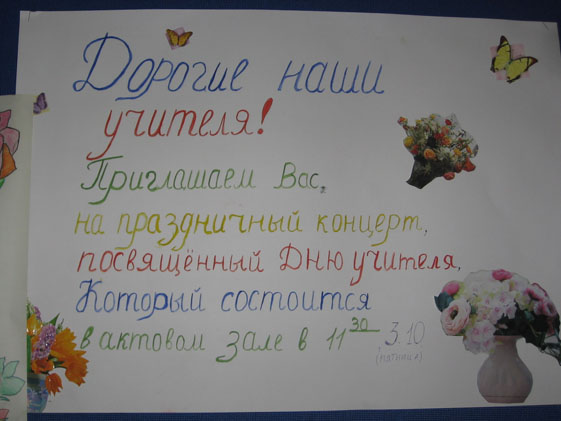 Дорогие наши
учителя!
Приглашаем Вас,
на праздничный концерт,
посвящённый Дню учителя,
Который состоится
в актовом зале в 11 30 3.10
(пятница)